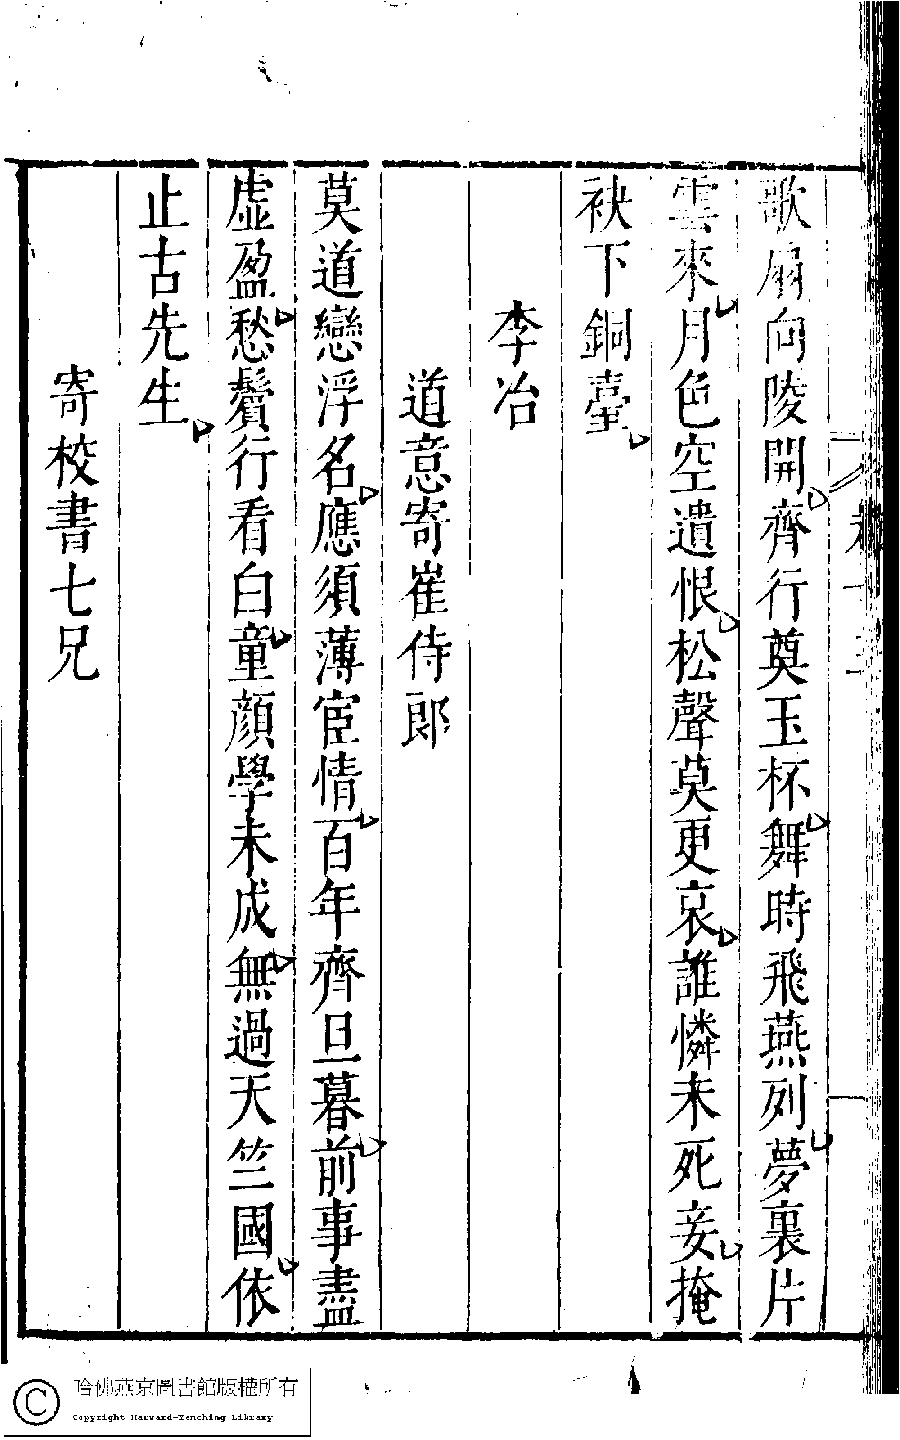 歌扇向陵開齊行奠玉杯舞時飛燕列夢裏片
雲來月色空遺恨松聲莫更哀誰憐未死妾掩
袂下銅臺
李冶
道意寄崔侍郎
莫道戀浮名應須薄宦情百年齊旦暮前事盡
虛盈愁鬢行看白童顏學未成無過天竺國依
止古先生
寄校書七兄
哈佛燕京圖書館版權所有
Copyright Harvard-Yenching Library